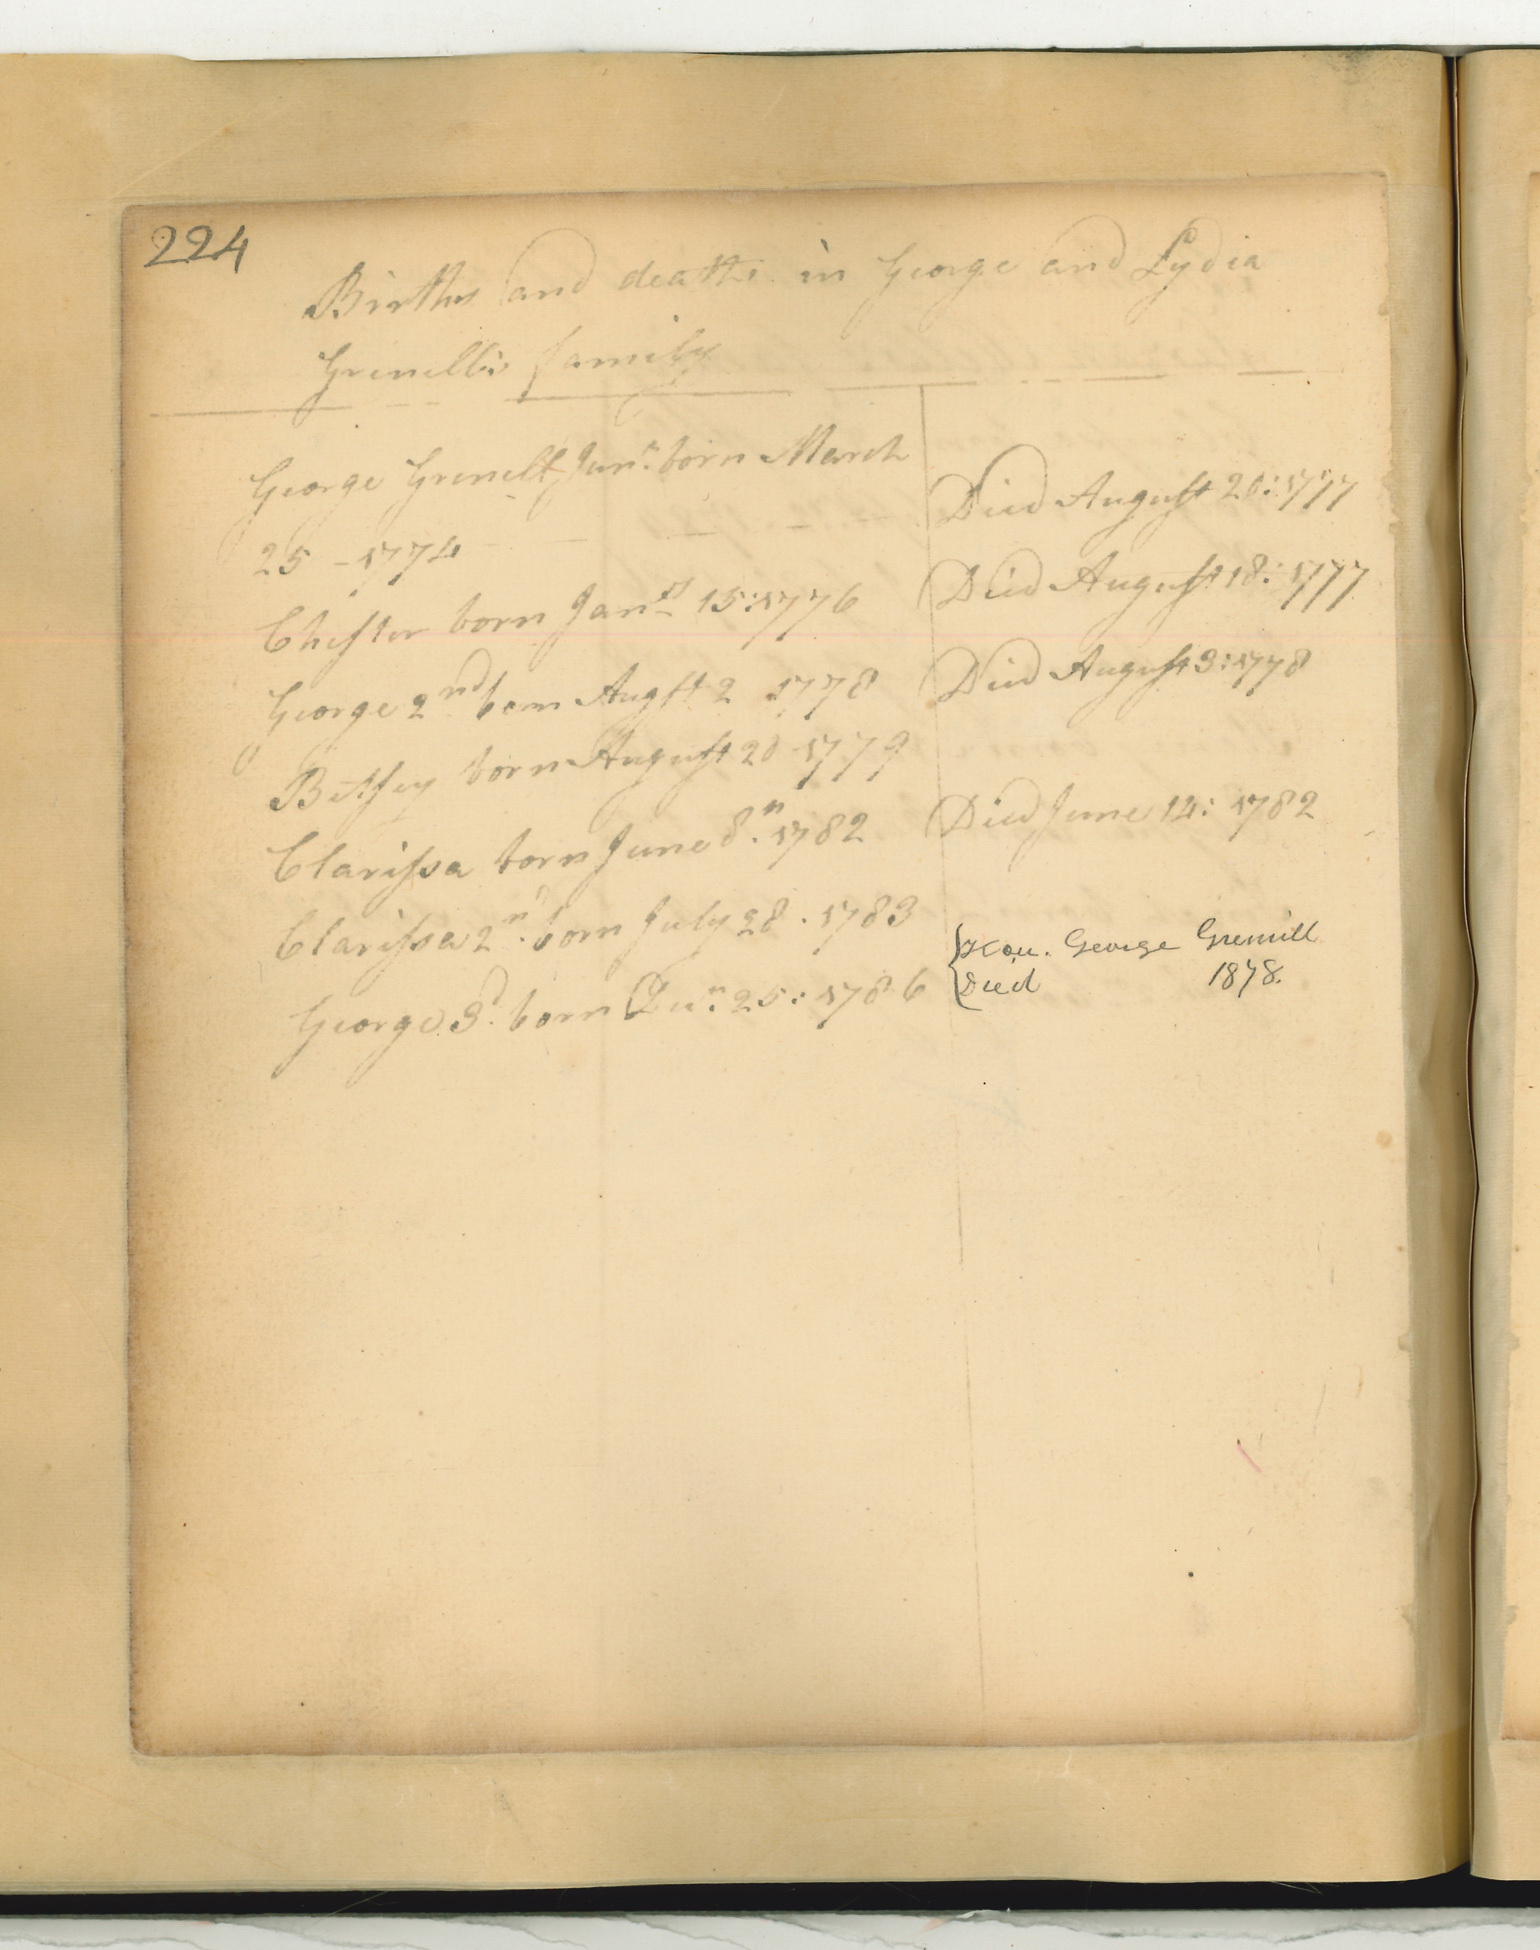 224
Births and deaths in George and Lydia
Grenells family
George Grenell Junr. born March
25 - 1774
Died August 20: 1777
Chester born Jany 15: 1776
Died August 18: 1777
George 2nd born Augst 2 1778
Died August 3: 1778
Betsey born August 20 1779
Clarissa born June 8th 1782
Died June 14: 1782
Clarissa 2nd born July 28. 1783
George 3d. born Decr. 25: 1786
Hon. George Grennill
Died 1878.